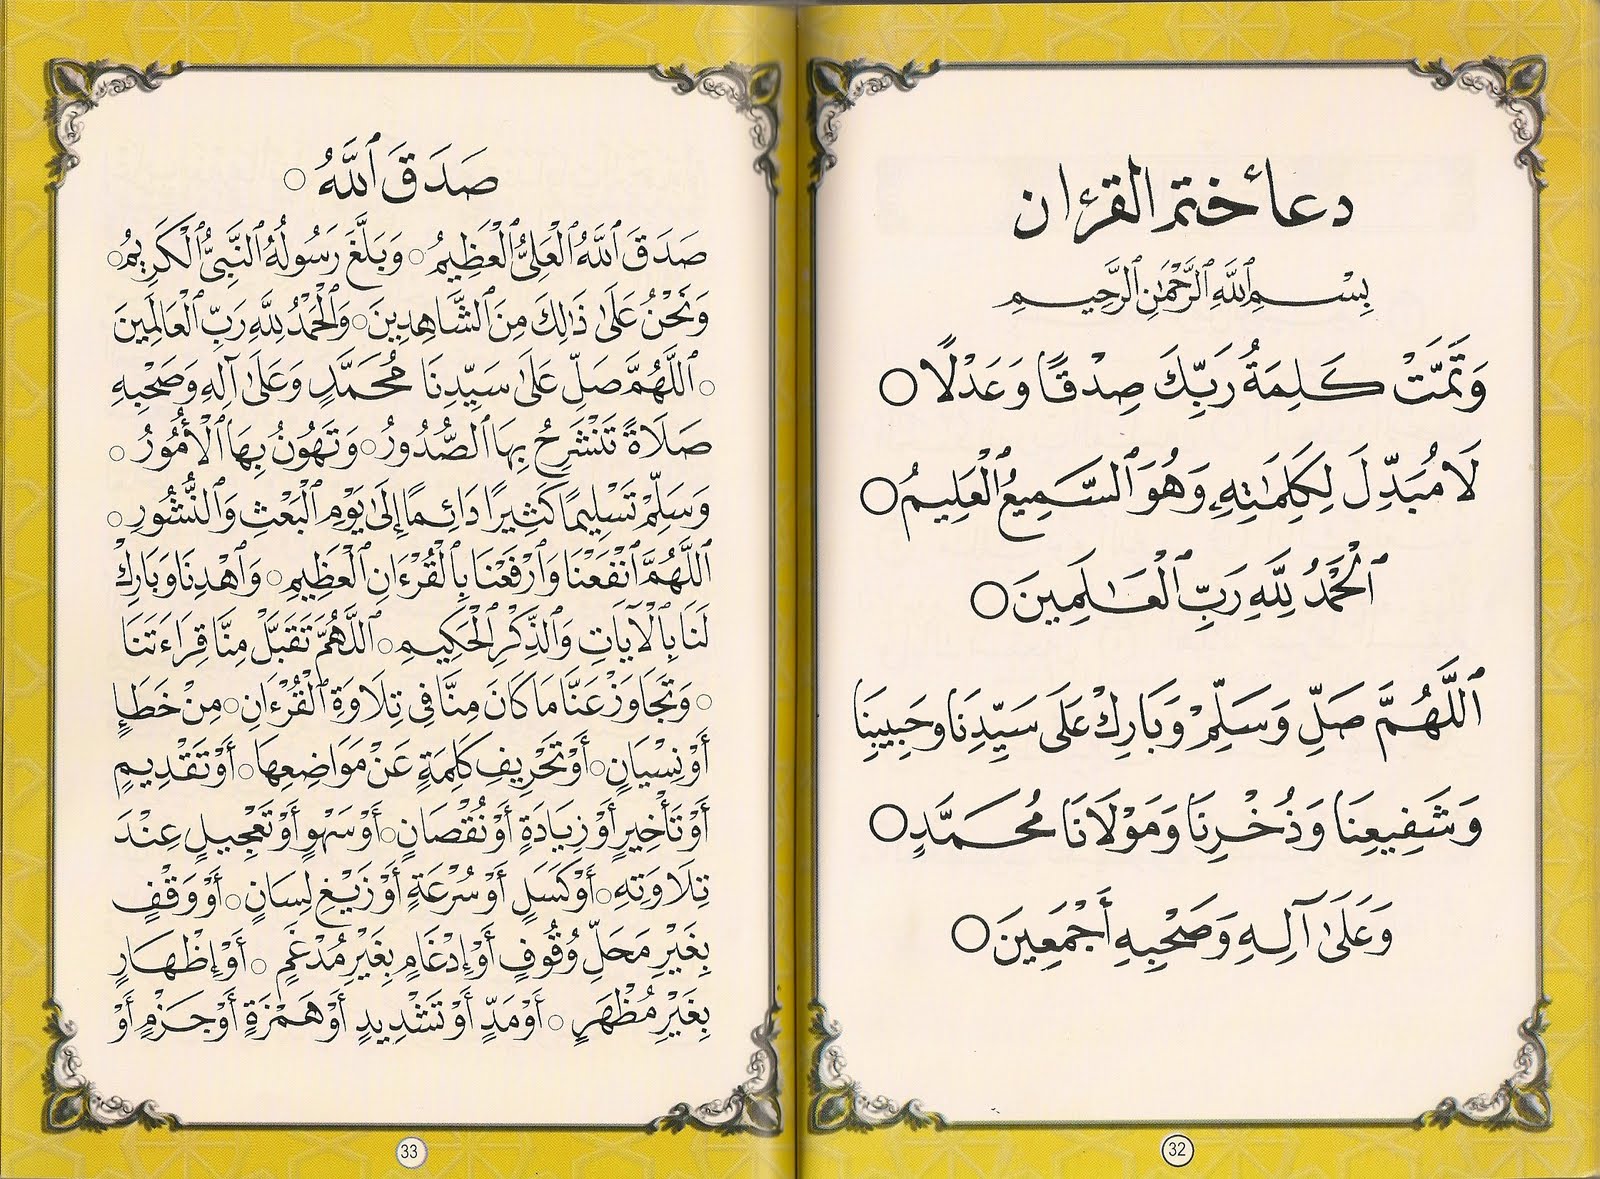 دعاءُ ختم القرءان
بِسْمِ ٱللَّهِ ٱلرَّحْمَٰنِ ٱلرَّحِيمِ
وَتَمَّتْ كَلِمَةُ رَبِّكَ صِدْقًا وَعَدْلًا ○
لَا مُبَدِّلَ لِكَلِمَٰتِهِۦ وَهُوَ ٱلسَّمِيعُ ٱلْعَلِيمُ ○
ٱلْحَمْدُ لِلَّهِ رَبِّ ٱلْعَـٰلَمِينَ ○
ٱللَّهُمَّ صَلِّ وَسَلِّمْ وَبَارِكْ عَلَى سَيِّدِنَا وَحَبِيبِنَا
وَشَفِيعِنَا وَذُخْرِنَا وَمَوْلَانَا مُحَمَّدٍ ○
وَعَلَىٰ آلِهِ وَصَحْبِهِ أَجْمَعِينَ ○
32
صَدَقَ ٱللَّهُ ○
صَدَقَ ٱللَّهُ ٱلْعَلِيُّ ٱلْعَظِيمُ ○ وَبَلَّغَ رَسُولُهُ ٱلنَّبِيُّ ٱلْكَرِيمُ ○
وَنَحْنُ عَلَىٰ ذَٰلِكَ مِنَ ٱلشَّاهِدِينَ ○ وَٱلْحَمْدُ لِلَّهِ رَبِّ ٱلْعَالَمِينَ
○ ٱللَّهُمَّ صَلِّ عَلَىٰ سَيِّدِنَا مُحَمَّدٍ وَعَلَىٰ آلِهِ وَصَحْبِهِ
صَلَاةً تَنْشَرِحُ بِهَا ٱلصُّدُورُ ○ وَتَهُونُ بِهَا ٱلْأُمُورُ ○
وَسَلِّمْ تَسْلِيمًا كَثِيرًا دَائِمًا إِلَىٰ يَوْمِ ٱلْبَعْثِ وَٱلنُّشُورِ ○
ٱللَّهُمَّ ٱنْفَعْنَا وَٱرْفَعْنَا بِٱلْقُرْءَانِ ٱلْعَظِيمِ ○ وَٱهْدِنَا وَبَارِكْ
لَنَا بِٱلْآيَاتِ وَٱلذِّكْرِ ٱلْحَكِيمِ ○ ٱللَّهُمَّ تَقَبَّلْ مِنَّا قِرَاءَتَنَا
○ وَتَجَاوَزْ عَنَّا مَا كَانَ مِنَّا فِي تِلَاوَةِ ٱلْقُرْءَانِ ○ مِنْ خَطَإٍ
أَوْ نِسْيَانٍ ○ أَوْ تَحْرِيفِ كَلِمَةٍ عَنْ مَوَاضِعِهَا ○ أَوْ تَقْدِيمٍ
أَوْ تَأْخِيرٍ أَوْ زِيَادَةٍ أَوْ نُقْصَانٍ ○ أَوْ سَهْوٍ أَوْ تَعْجِيلٍ عِنْدَ
تِلَاوَتِهِ ○ أَوْ كَسَلٍ أَوْ سُرْعَةٍ أَوْ زَيْغِ لِسَانٍ ○ أَوْ وَقْفٍ
بِغَيْرِ مَحَلِّ وُقُوفٍ أَوْ إِدْغَامٍ بِغَيْرِ مُدْغَمٍ ○ أَوْ إِظْهَارٍ
بِغَيْرِ مُظْهَرٍ ○ أَوْ مَدٍّ أَوْ تَشْدِيدٍ أَوْ هَمْزَةٍ أَوْ جَزْمٍ أَوْ
33